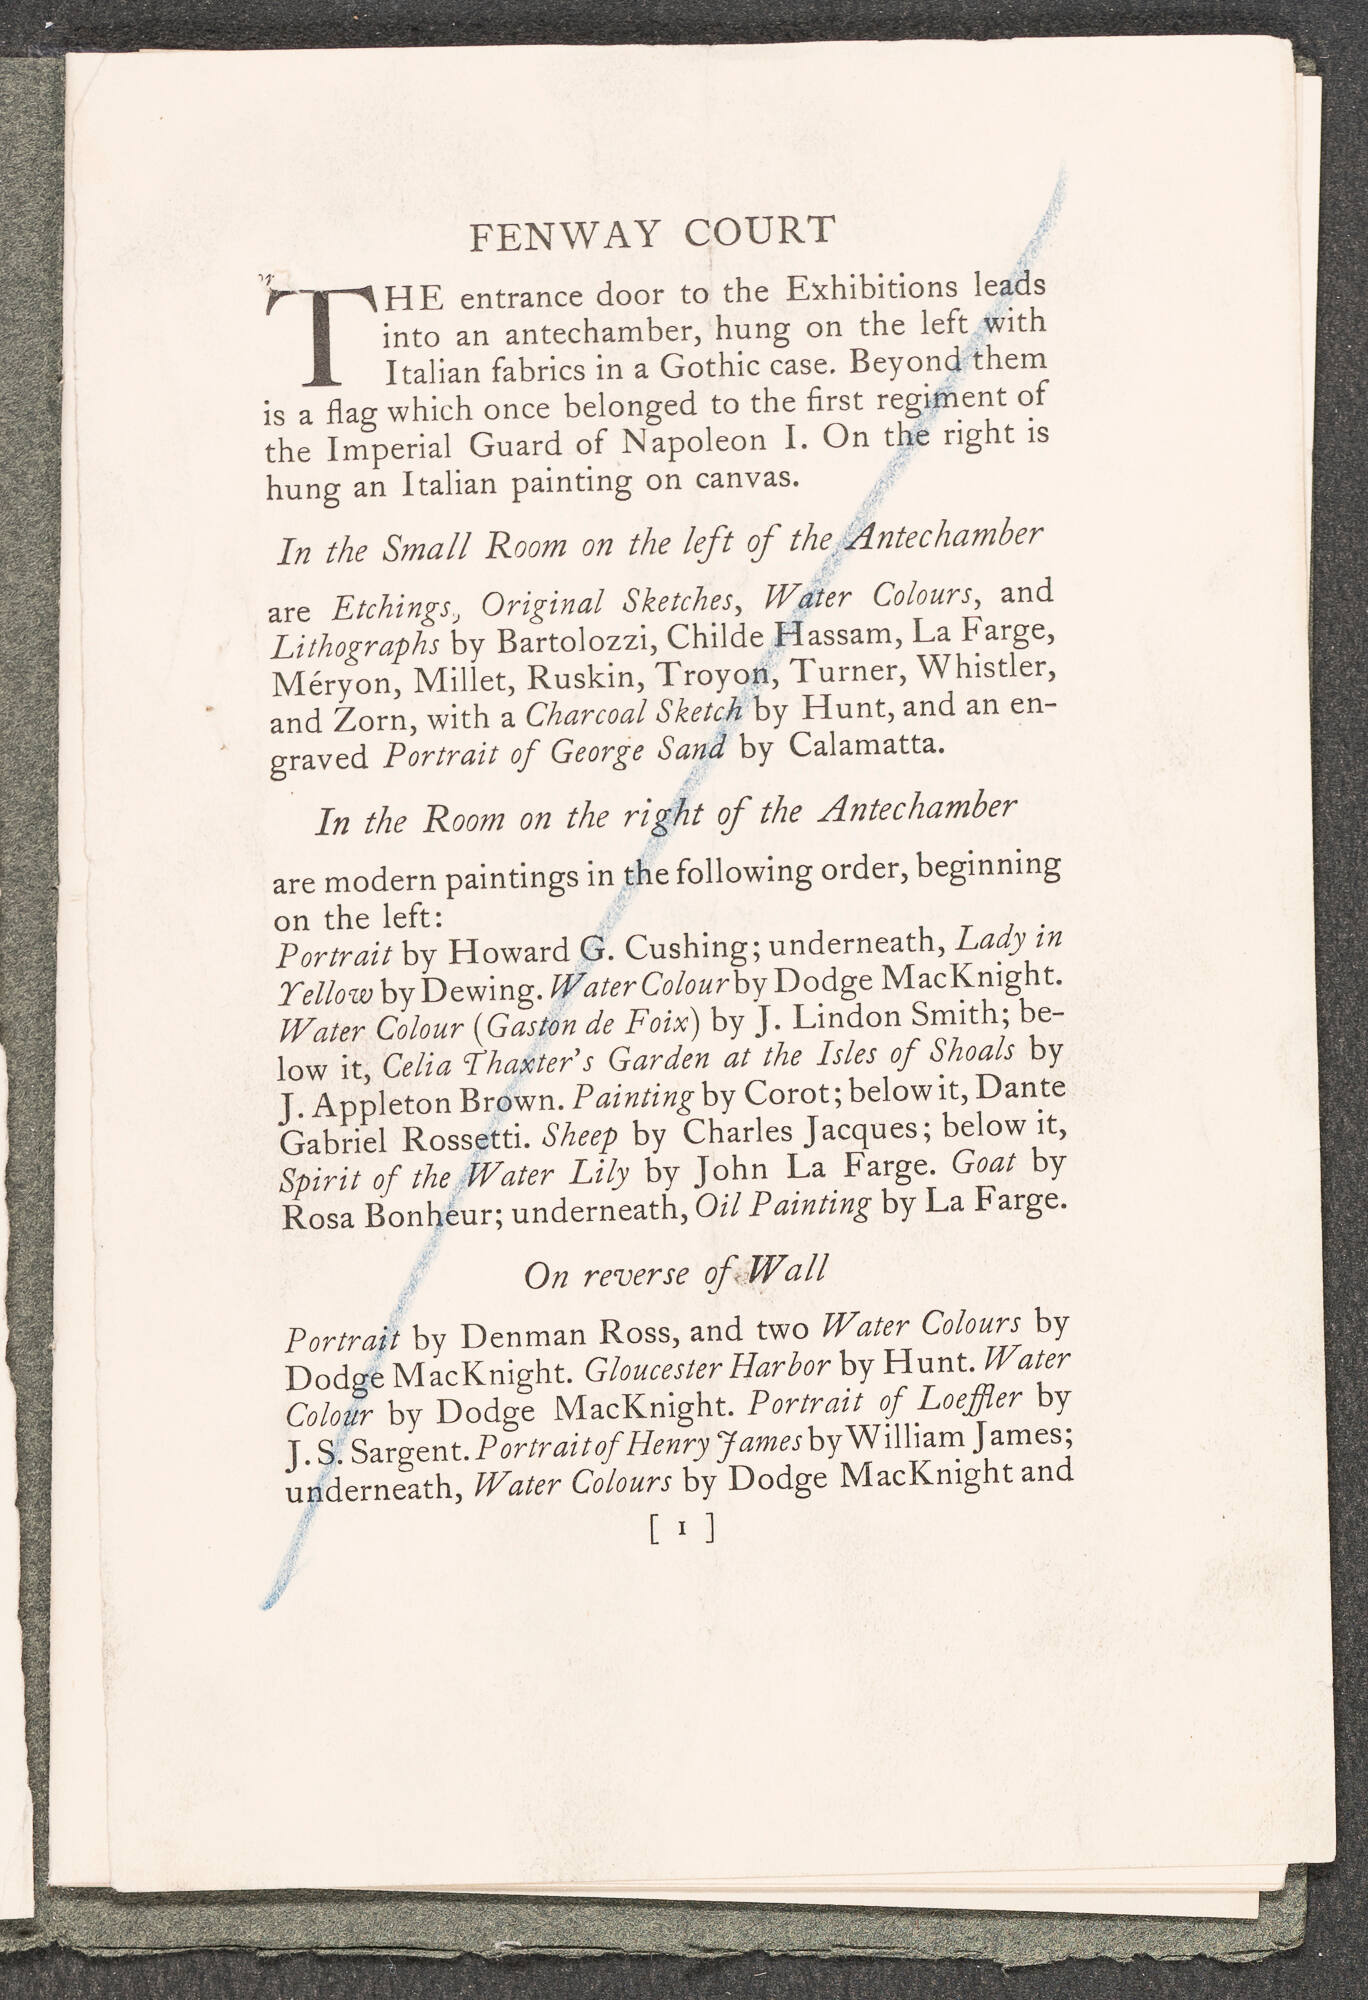 FENWAY COURT
THE entrance door to the Exhibitions leads
into an antechamber, hung on the left with
Italian fabrics in a Gothic case. Beyond them
is a flag which once belonged to the first regiment of
the Imperial Guard of Napoleon I. On the right is
hung an Italian painting on canvas.
In the Small Room on the left of the Antechamber
are Etchings, Original Sketches, Water Colours, and
Lithographs by Bartolozzi, Childe Hassam, La Farge,
Méryon, Millet, Ruskin, Troyon, Turner, Whistler,
and Zorn, with a Charcoal Sketch by Hunt, and an en-
graved Portrait of George Sand by Calamatta.
In the Room on the right of the Antechamber
are modern paintings in the following order, beginning
on the left:
Portrait by Howard G. Cushing; underneath, Lady in
Yellow by Dewing. Water Colour by Dodge MacKnight.
Water Colour (Gaston de Foix) by J. Lindon Smith; be-
low it, Celia Thaxter's Garden at the Isles of Shoals by
J. Appleton Brown. Painting by Corot; below it, Dante
Gabriel Rossetti. Sheep by Charles Jacques; below it,
Spirit of the Water Lily by John La Farge. Goat by
Rosa Bonheur; underneath, Oil Painting by La Farge.
On reverse of Wall
Portrait by Denman Ross, and two Water Colours by
Dodge MacKnight. Gloucester Harbor by Hunt. Water
Colour by Dodge MacKnight. Portrait of Loeffler by
J. S. Sargent. Portrait of Henry James by William James;
underneath, Water Colours by Dodge MacKnight and
[ 1 ]